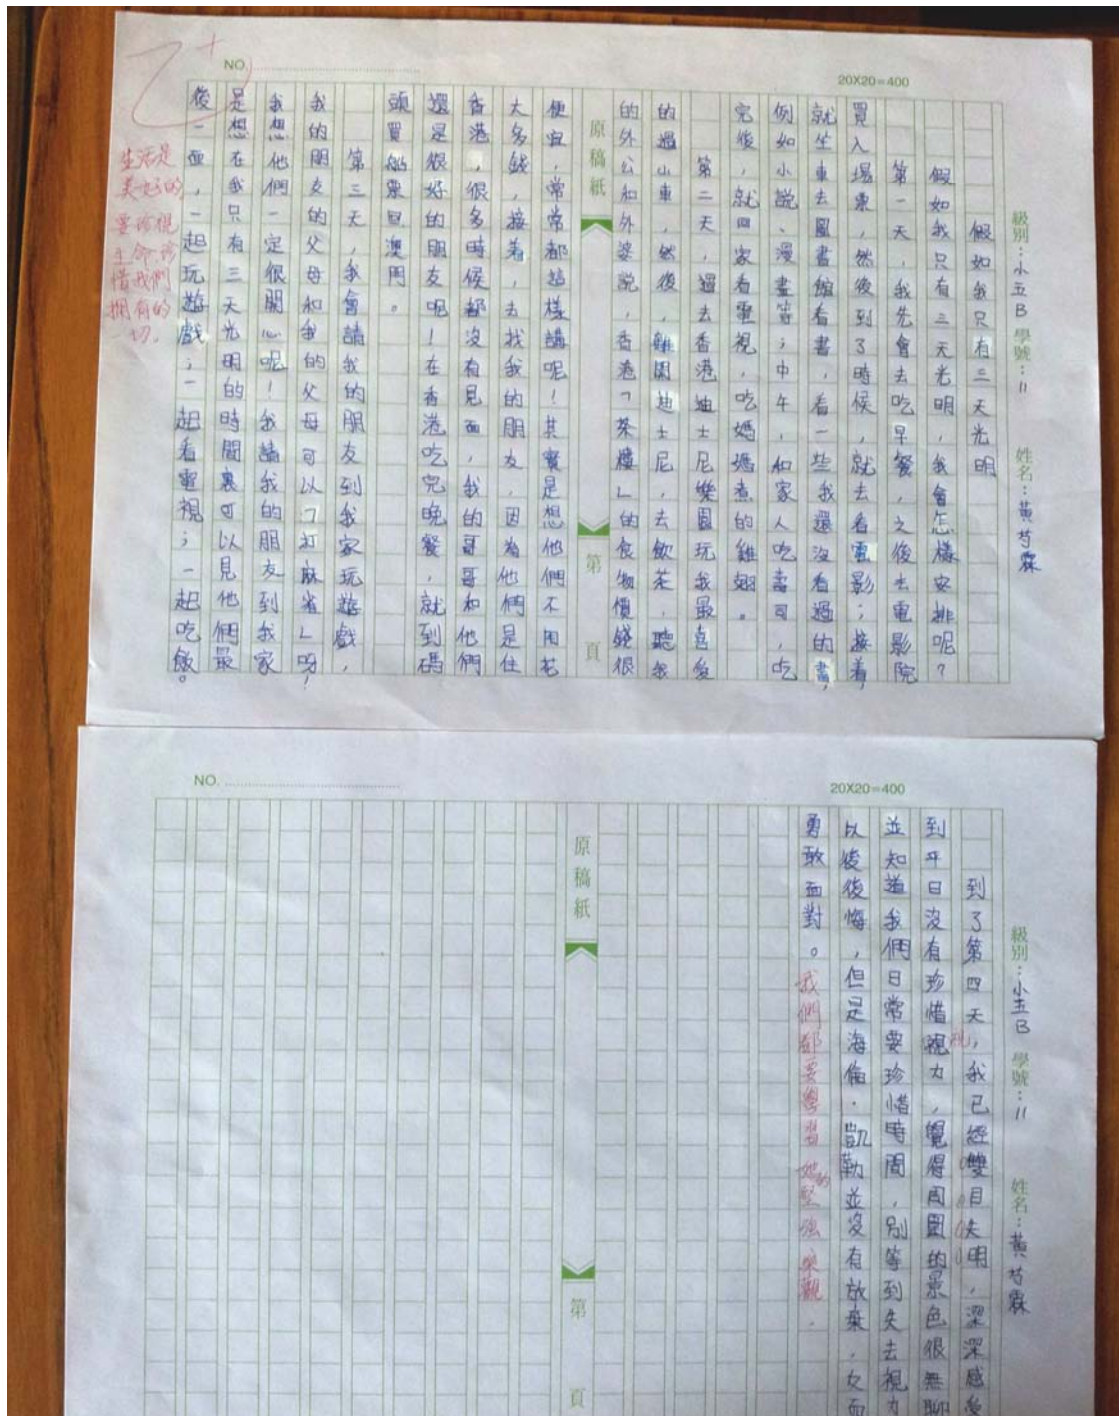 20X20=400
NO.
級別：小五B 學號：11 姓名：黃芍霖
假如我只有三天光明
假如我只有三天光明，我會怎樣安排呢？
第一天，我先會去吃早餐，之後去電影院
買入場票，然後到了時候，就去看電影；接着，
就坐車去圖書館看書，看一些我還沒看過的書，
例如小說、漫畫等；中午，和家人吃壽司，吃
完後，就回家看電視，吃媽媽煮的雞翅。
第二天，過去香港迪士尼樂園玩我最喜愛
的過山車，然後，離開迪士尼，去飲茶，聽我
的外公和外婆說，香港「茶樓」的食物價錢很
原稿紙 第 頁
便宜，常常都這樣講呢！其實是想他們不用花
太多錢，接着，去找我的朋友，因為他們是住
香港，很多時候都沒有見面，我的哥哥和他們
還是很好的朋友呢！在香港吃完晚餐，就到碼
頭買船票回澳門。
第三天，我會請我的朋友到我家玩遊戲，
我的朋友的父母和我的父母可以「打麻雀」呀！
我想他們一定很開心呢！我請我的朋友到我家
是想在我只有三天光明的時間裏可以見他們最
後一面，一起玩遊戲；一起看電視；一起吃飯。
乙+
生活是
美好的
要珍視
生命，珍
惜我們
擁有的
一切。
20X20=400
NO.
級別：小五B 學號：11 姓名：黃芍霖
到了第四天，我已經雙目失明，深深感受
到平日沒有珍惜視力，覺得周圍的景色很無聊
並知道我們日常要珍惜時間，別等到失去視力
以後後悔，但是海倫．凱勒並沒有放棄，
勇敢面對。我們都要學習她的堅強、樂觀．
視
原稿紙 第 頁